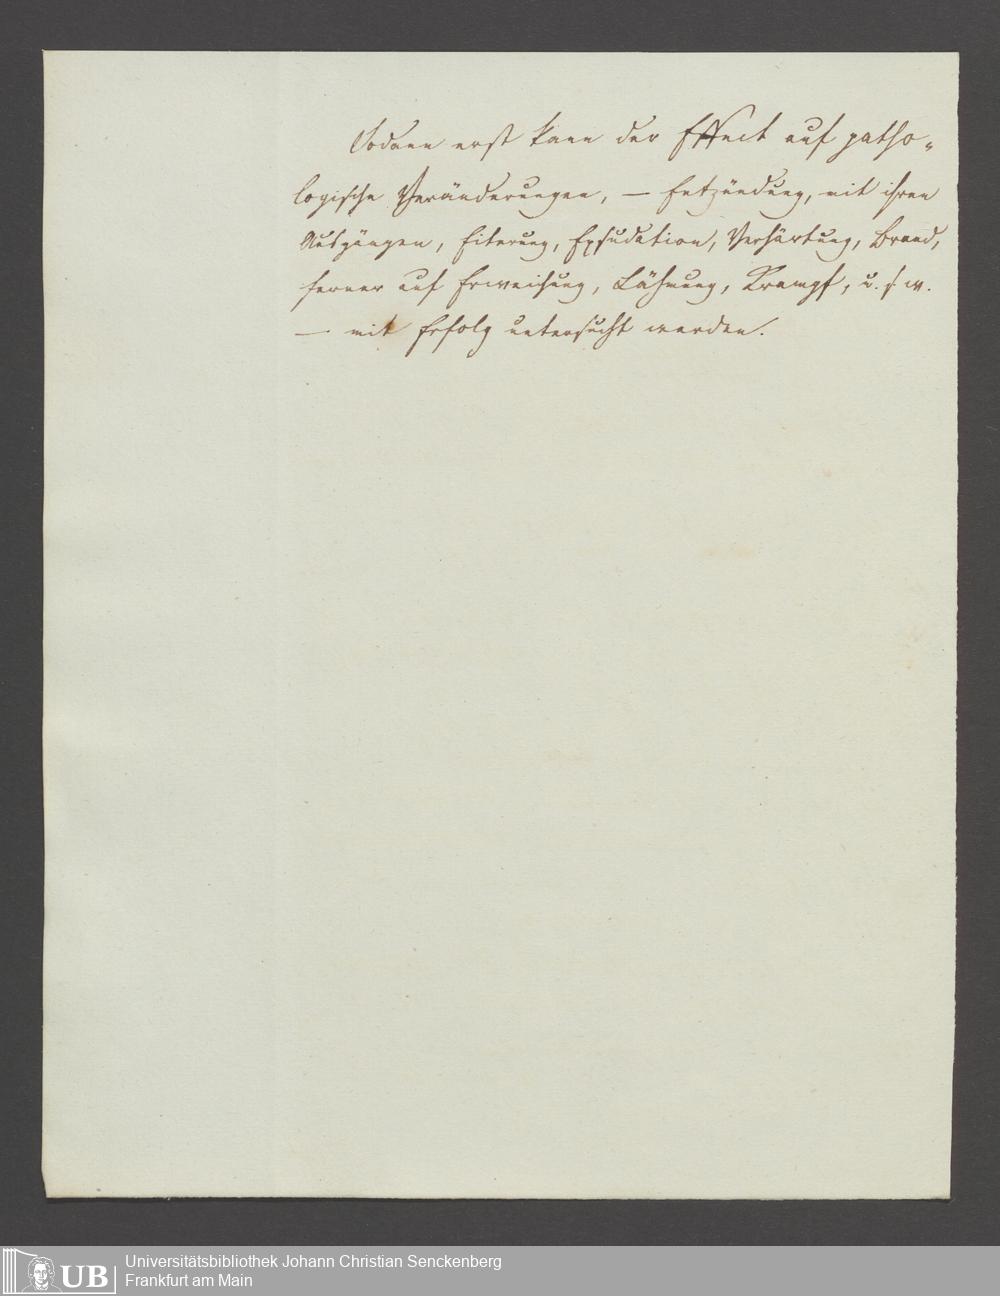 Sodann erst kann der Effect auf patho-
logische Veränderungen, — Entzündung, mit ihren
Ausgängen, Eiterung, Exsudation, Verhärtung, Brand,
ferner auf Erweichung, Lähmung, Krampf, u. s. w.
— mit Erfolg untersucht werden.
UB
Universitätsbibliothek Johann Christian Senckenberg
Frankfurt am Main